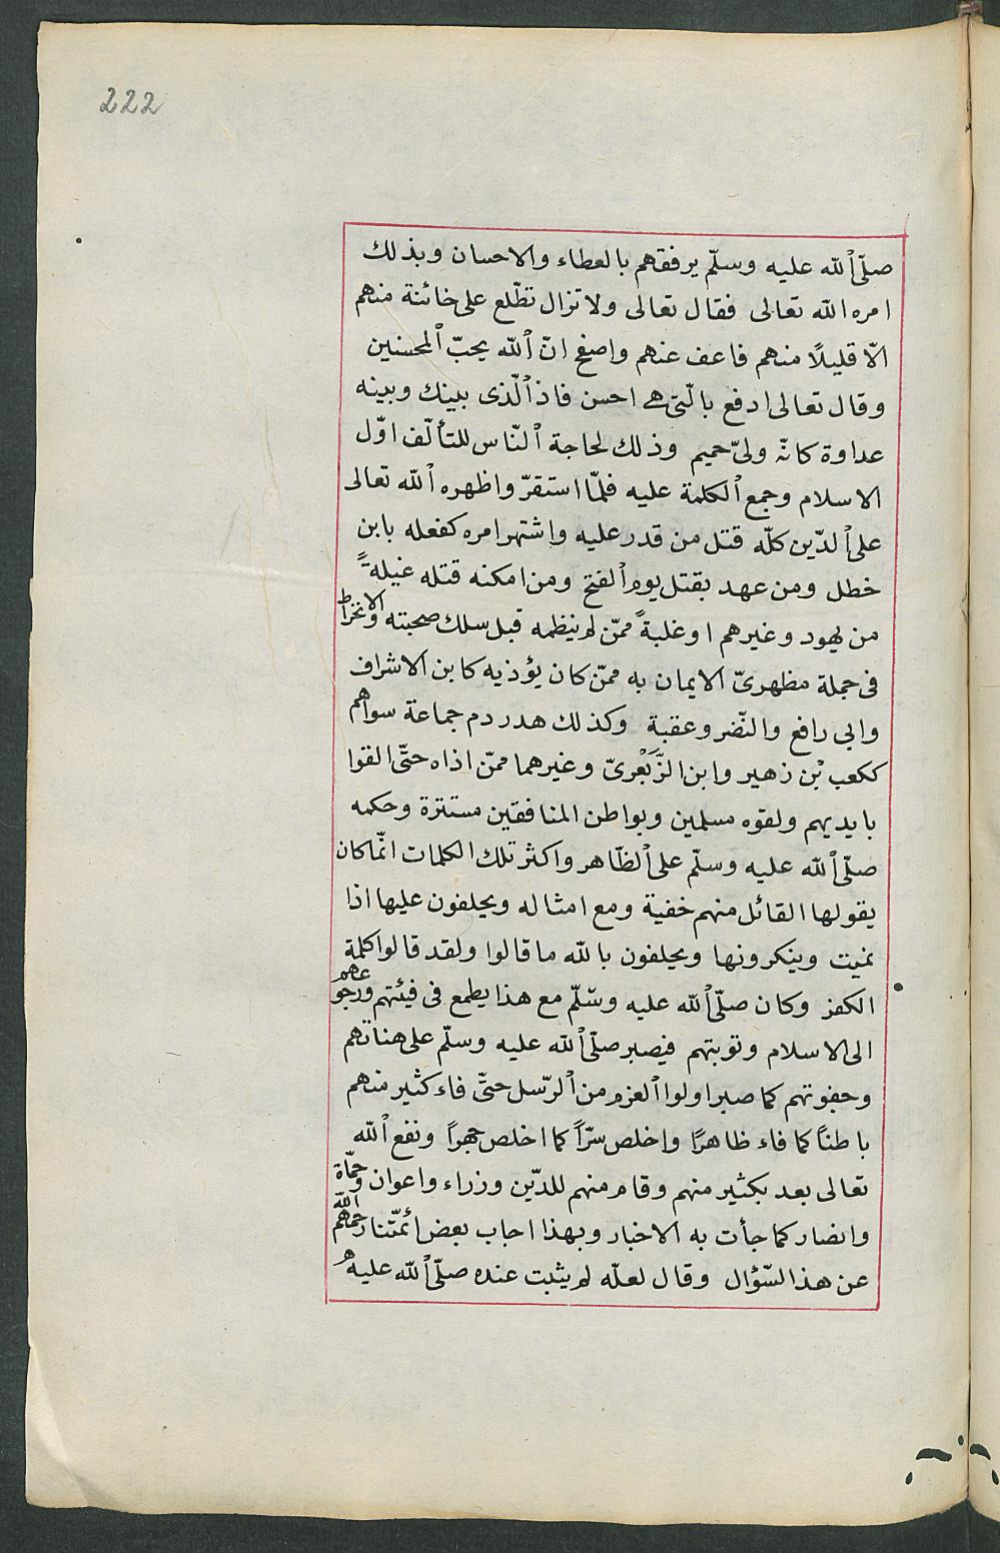 222
صلّى ٱلله عليه وسلّم يرفقهم بالعطاء والاحسان وبذلك
امره الله تعالى فقال تعالى ولا تزال تطّلع على خائنة منهم
الّا قليلًا منهم فاعف عنهم واصفح انّ ٱلله يحبّ ٱلمحسنين
وقال تعالى ادفع بالّتى هى احسن فاذ ٱلّذى بينك وبينه
عداوة كانّه ولىّ حميم وذلك لحاجة ٱلنّاس للتألّف اوّل
الاسلام وجمع ٱلكلمة عليه فلمّا استقرّ واظهره ٱلله تعالى
على ٱلدّين كلّه قتل من قدر عليه واشتهر امره كفعله بابن
خطل ومن عهد بقتل يوم ٱلفتح ومن امكنه قتله غيلةً
من يهود وغيرهم او غلبةً ممّن لم ينظمه قبل سلك صحبته والانخراط
فى جملة مظهرىّ الايمان به ممّن كان يؤذيه كابن الاشراف
وابى رافع والنّضر وعقبة وكذلك هدر دم جماعة سواهم
ككعب بْن زهير وابن الزَّبَعْرىّ وغيرهما ممّن اذاه حتّى القوا
بايديهم ولقوه مسلمين وبواطن المنافقين مستترة وحكمه
صلّى ٱلله عليه وسلّم على ٱلظّاهر واكثر تلك الكلمات انّما كان
يقولها القائل منهم خفية ومع امثاله ويحلفون عليها اذا
نميت وينكرونها ويحلفون بالله ما قالوا ولقد قالوا كلمة
الكفر وكان صلّى ٱلله عليه وسّلّم مع هذا يطمع فى فيئتهم ورجوعهم
الى الاسلام وتوبتهم فيصبر صلّى ٱلله عليه وسلّم على هناتهم
وحفوتهم كما صبر اولوا ٱلعزم من ٱلرّسل حتّى فاء كثير منهم
باطنًا كما فاء ظاهرًا واخلص سرّاً كما اخلص جهراً ونفع ٱلله
تعالى بعد بكثير منهم وقام منهم للدّين وزراء واعوان وحمّاة
وانصار كما جأت به الاخبار وبهذا اجاب بعض ائمّتنا رحمهم الله
عن هذا السّؤال وقال لعلّه لم يثبت عنده صلّى ٱلله عليه